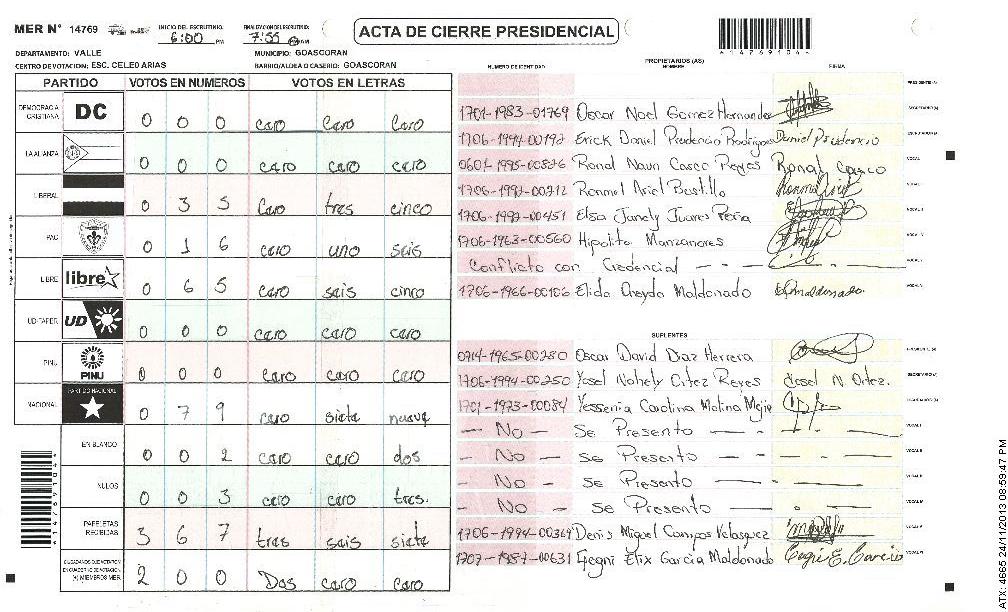 MER N° 14769 INICIO DEL ESCRUTINIO: 6:00 PM FINALIZACION DEL ESCRUTINIO: 7:55 PM ACTA DE CIERRE PRESIDENCIAL
DEPARTAMENTO: VALLE MUNICIPIO: GOASCORAN
CENTRO DE VOTACION: ESC. CELEO ARIAS BARRIO/ALDEA O CASERIO: GOASCORAN
PARTIDO VOTOS EN NUMEROS VOTOS EN LETRAS
DEMOCRACIA CRISTIANA DC 0 0 0 cero cero cero
LA ALIANZA 0 0 0 cero cero cero
LIBERAL 0 3 5 cero tres cinco
PAC 0 1 6 cero uno seis
LIBRE libre 0 6 5 cero seis cinco
UD-FAPER UD 0 0 0 cero cero cero
PINU PINU 0 0 0 cero cero cero
NACIONAL PARTIDO NACIONAL 0 7 9 cero siete nueve
EN BLANCO 0 0 2 cero cero dos
NULOS 0 0 3 cero cero tres.
PAPELETAS RECIBIDAS 3 6 7 tres seis siete
CIUDADANOS QUE VOTARON EN CUADERNO DE VOTACION (+) MIEMBROS MER 2 0 0 Dos cero cero
NUMERO DE IDENTIDAD PROPIETARIOS (AS) NOMBRE FIRMA
1701-1983-01769 Oscar Noel Gomez Hernandez
1706-1994-00192 Erick Daniel Prudencio Rodriguez Daniel Prudencio
0601-1995-00826 Ronal Naun Casco Reyes Ronal Casco
1706-1992-00212 Ronmel Ariel Bustillo
1706-1992-00451 Elsa Janely Juares Peña
1706-1963-00560 Hipolito Manzanares
Conflicto con Credencial
1706-1966-00106 Elida Oreyda Maldonado
SUPLENTES
0914-1965-00280 Oscar David Diaz Herrera
1706-1994-00250 Yosel Nohely Ortez Reyes Yosel N. Ortez.
1701-1973-00084 Yessenia Carolina Molina Mejia
- No - se Presento
- No - se Presento
- No - se Presento
- No - se Presento
1706-1994-00369 Denis Miguel Campos Velasquez
1707-1987-00631 Elix Garcia Maldonado
4147691041
ATX: 4665 24/11/2013 08:59:47 PM